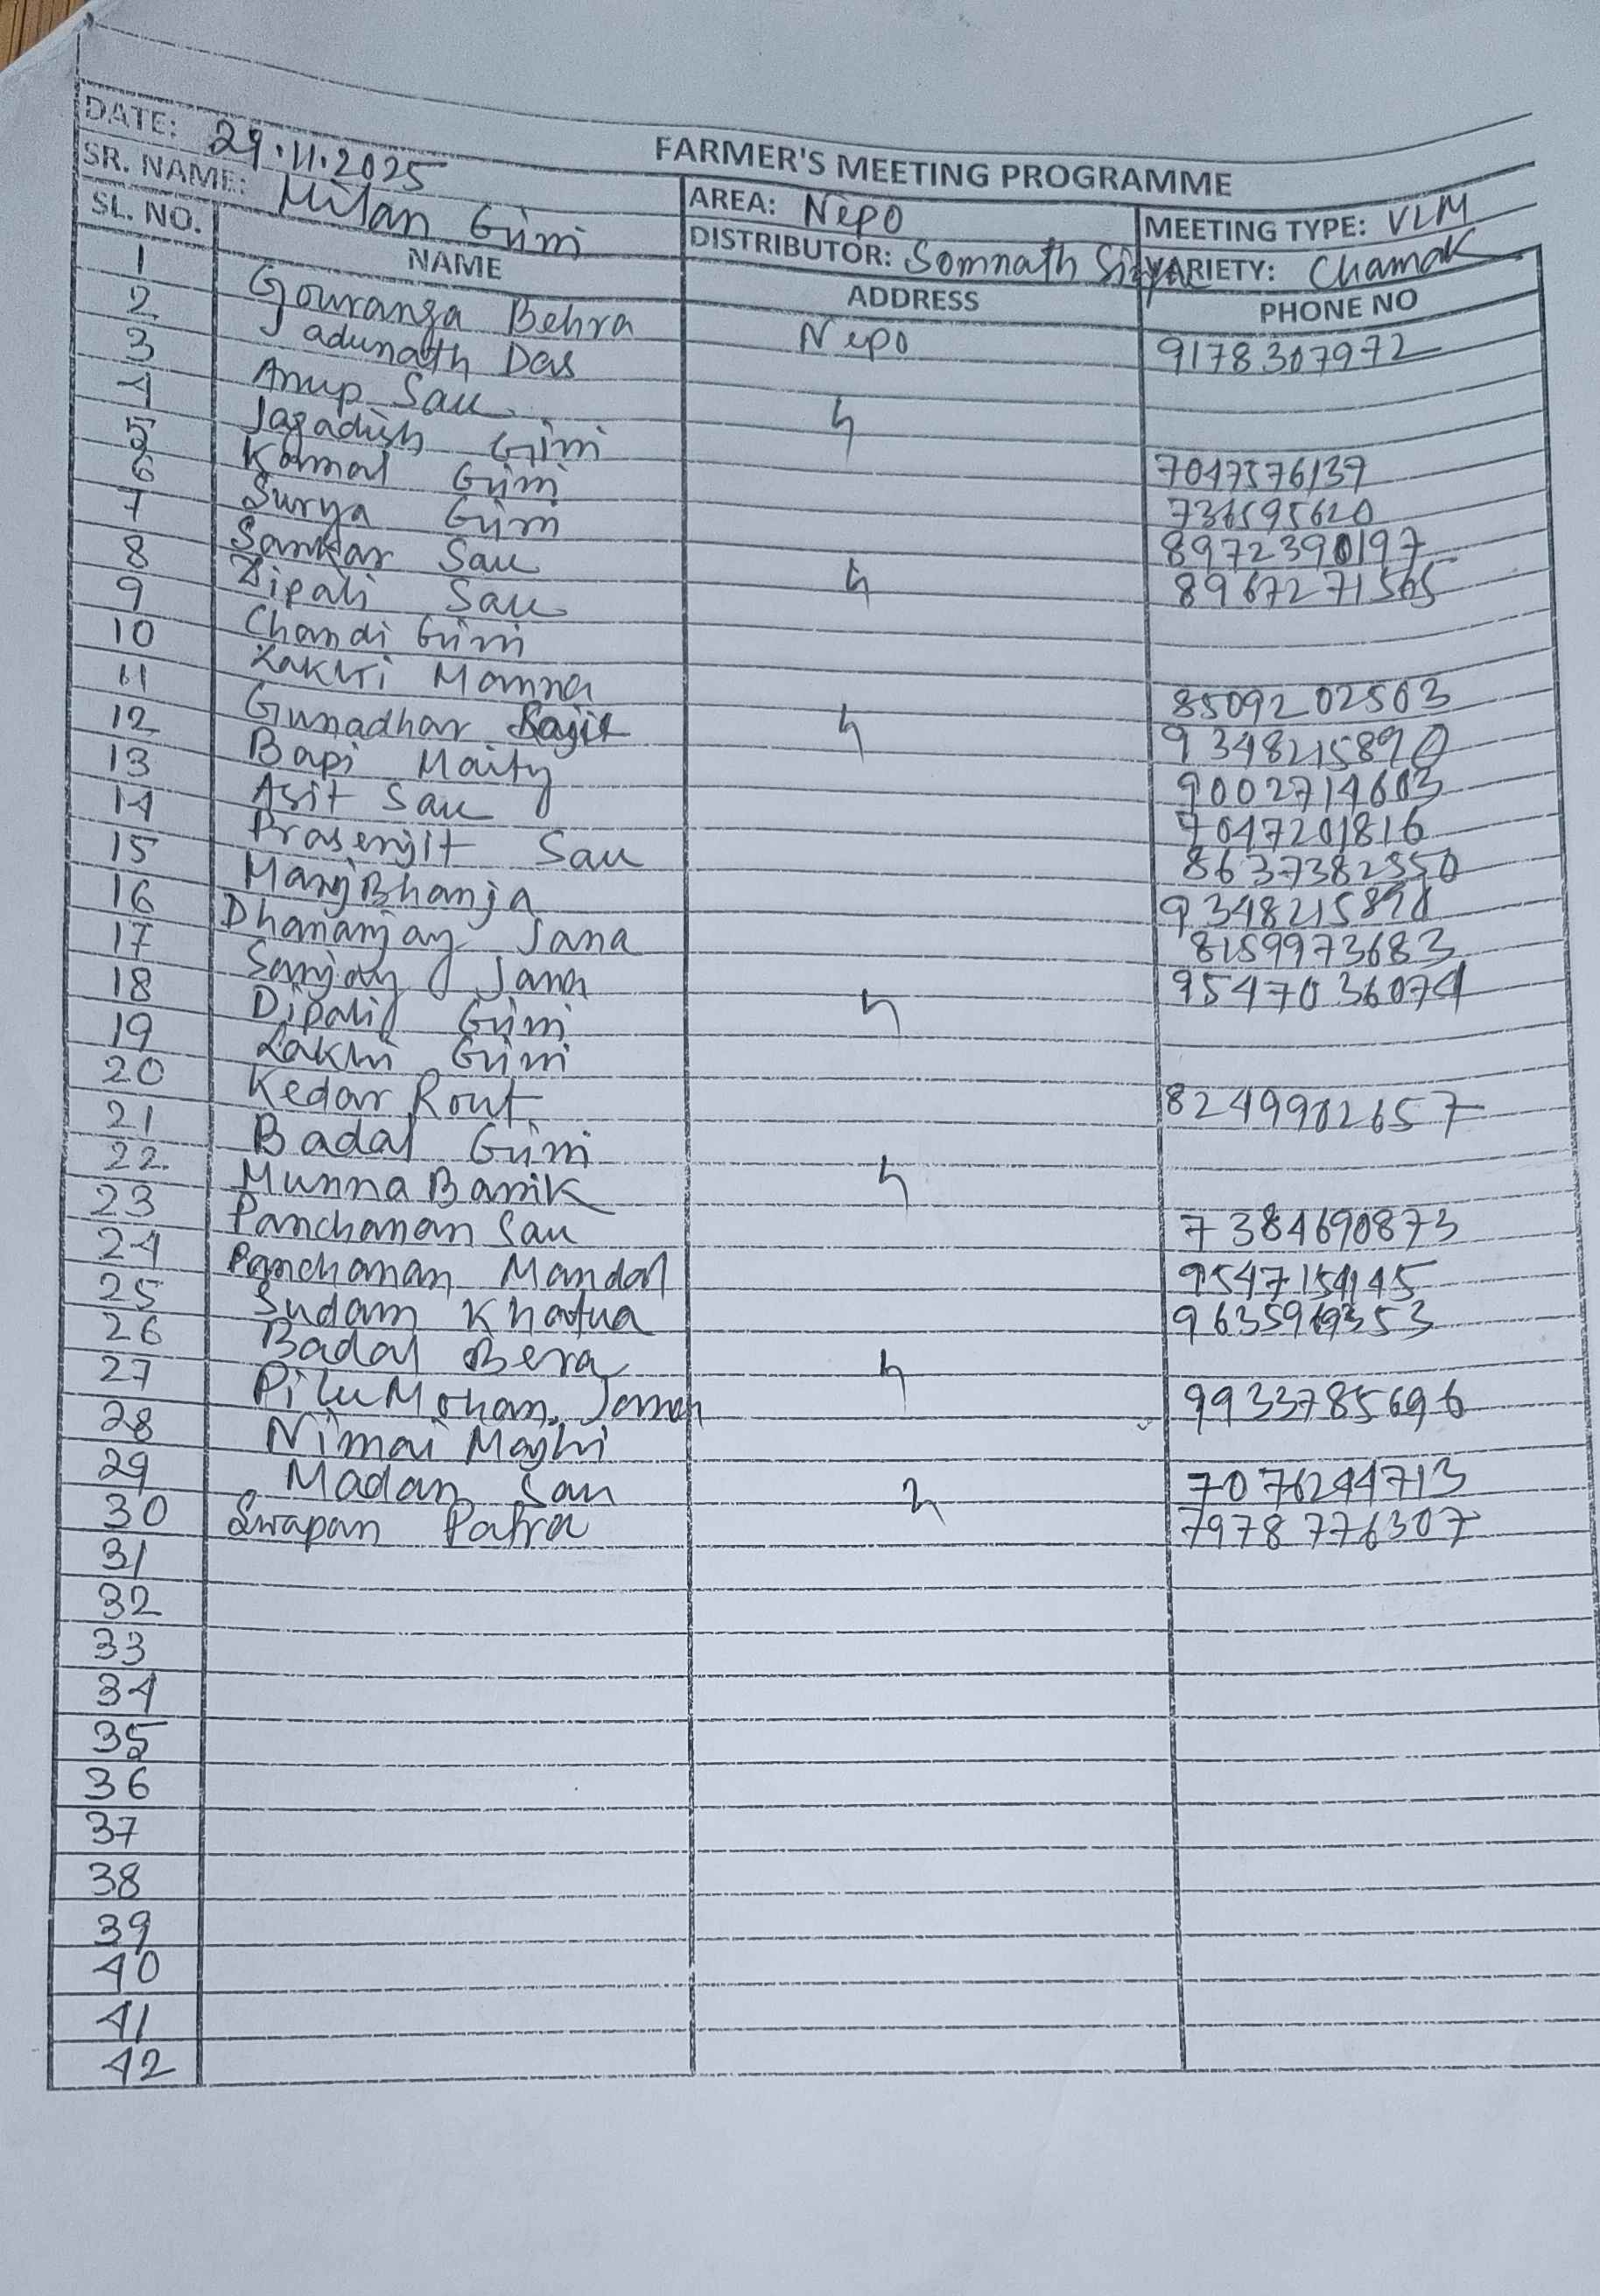 FARMER'S MEETING PROGRAMME
DATE: 29.11.2025 AREA: Nepo MEETING TYPE: VLM
SR. NAME: Milan Giri DISTRIBUTOR: Somnath VARIETY: Chamak
SL. NO. NAME ADDRESS PHONE NO
1 Gouranga Behra Nepo 9178307972
2 Jadunath Das
3 Anup Sau
4 Jagadish Giri 7047576137
5 Kamal Giri 736595620
6 Surya Giri 8972390197
7 Sankar Sau 8967271565
8 Dipali Sau
9 Chandi Giri
10 Lakhi Manna 8509202503
11 Gunadhar 9348215890
12 Bapi Maity 9002714603
13 Asit Sau 7047201816
14 Prasenjit Sau 8637382350
15 Manj Bhanja
16 Dhananjay Jana 8159973683
17 Sanjay Jana 9547036074
18 Dipali Giri
19 Lakhi Giri
20 Kedar Rout 8249902657
21 Badal Giri
22 Munna Barik
23 Panchanan Sau 7384690873
24 Panchanan Mandal
25 Sudam Khatua
26 Badal Bera
27 Pilu Mohan Jana 9933785696
28 Nimai Majhi
29 Madan Sau 7076244713
30 Swapan Patra 7978776307
31
32
33
34
35
36
37
38
39
40
41
42